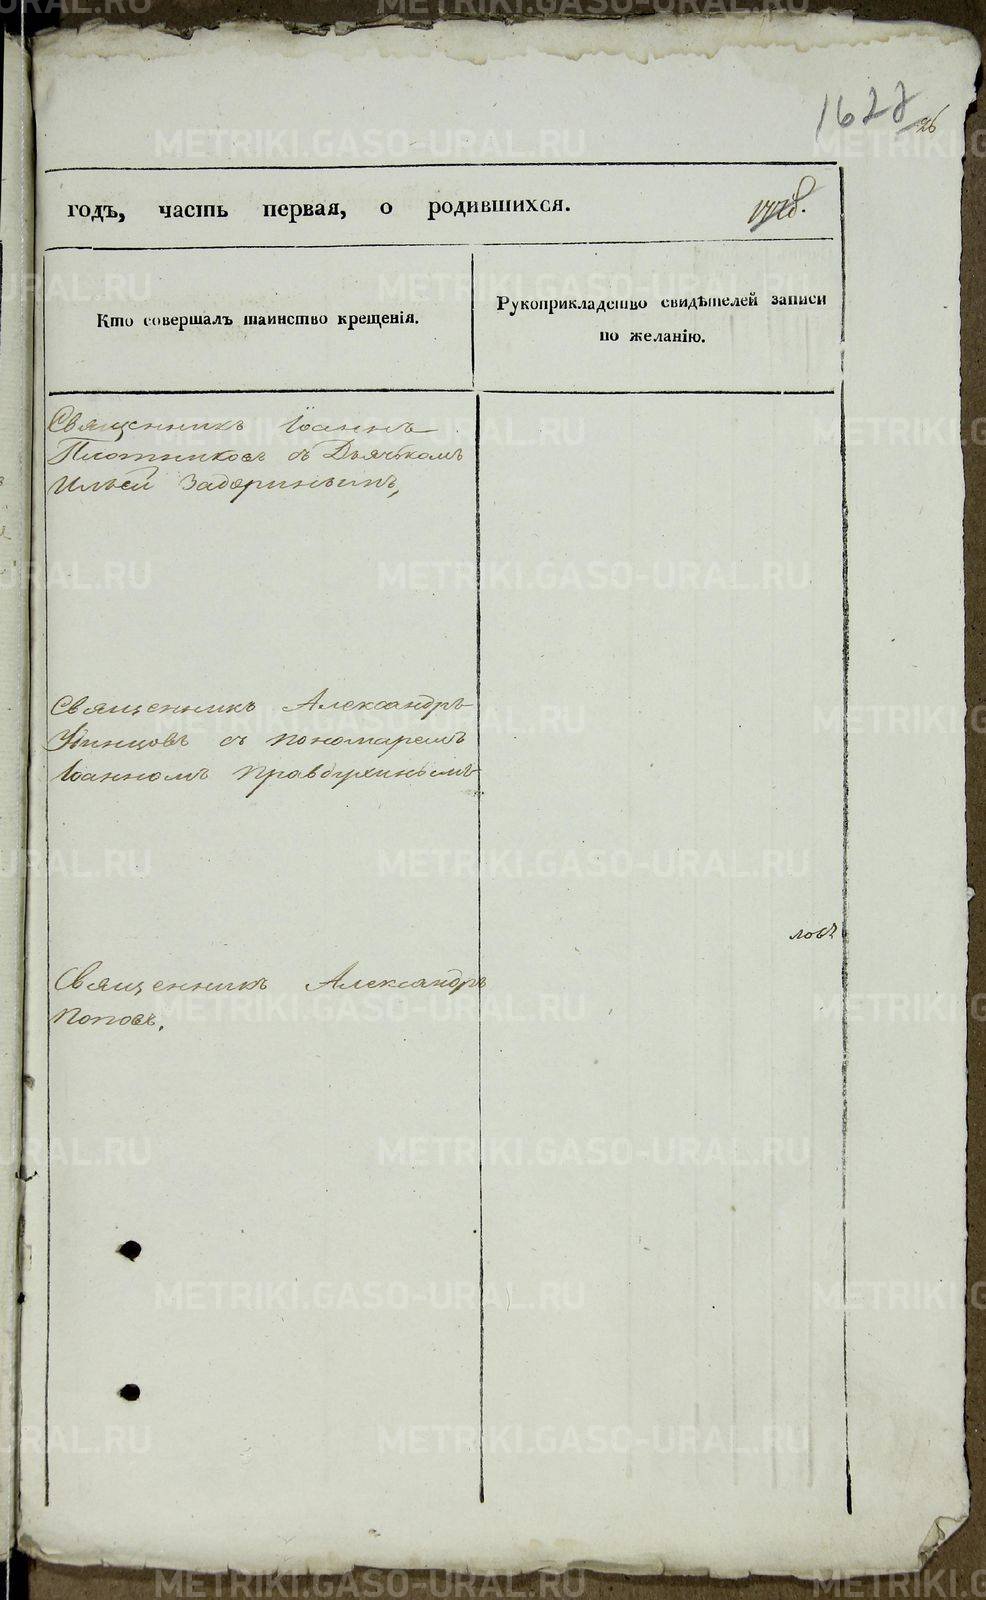 1622
26
годъ, часть первая, о родившихся.
Кто совершалъ таинство крещенія.
Рукоприкладство свидѣтелей записи
по желанію.
Священникъ Іоаннъ
Плотниковъ съ Дьячкомъ
Ильей
Священникъ Александръ
съ пономаремъ
Іоанномъ Правдухинымъ
ловъ
Священникъ Александръ
Поповъ,
METRIKI.GASO-URAL.RU